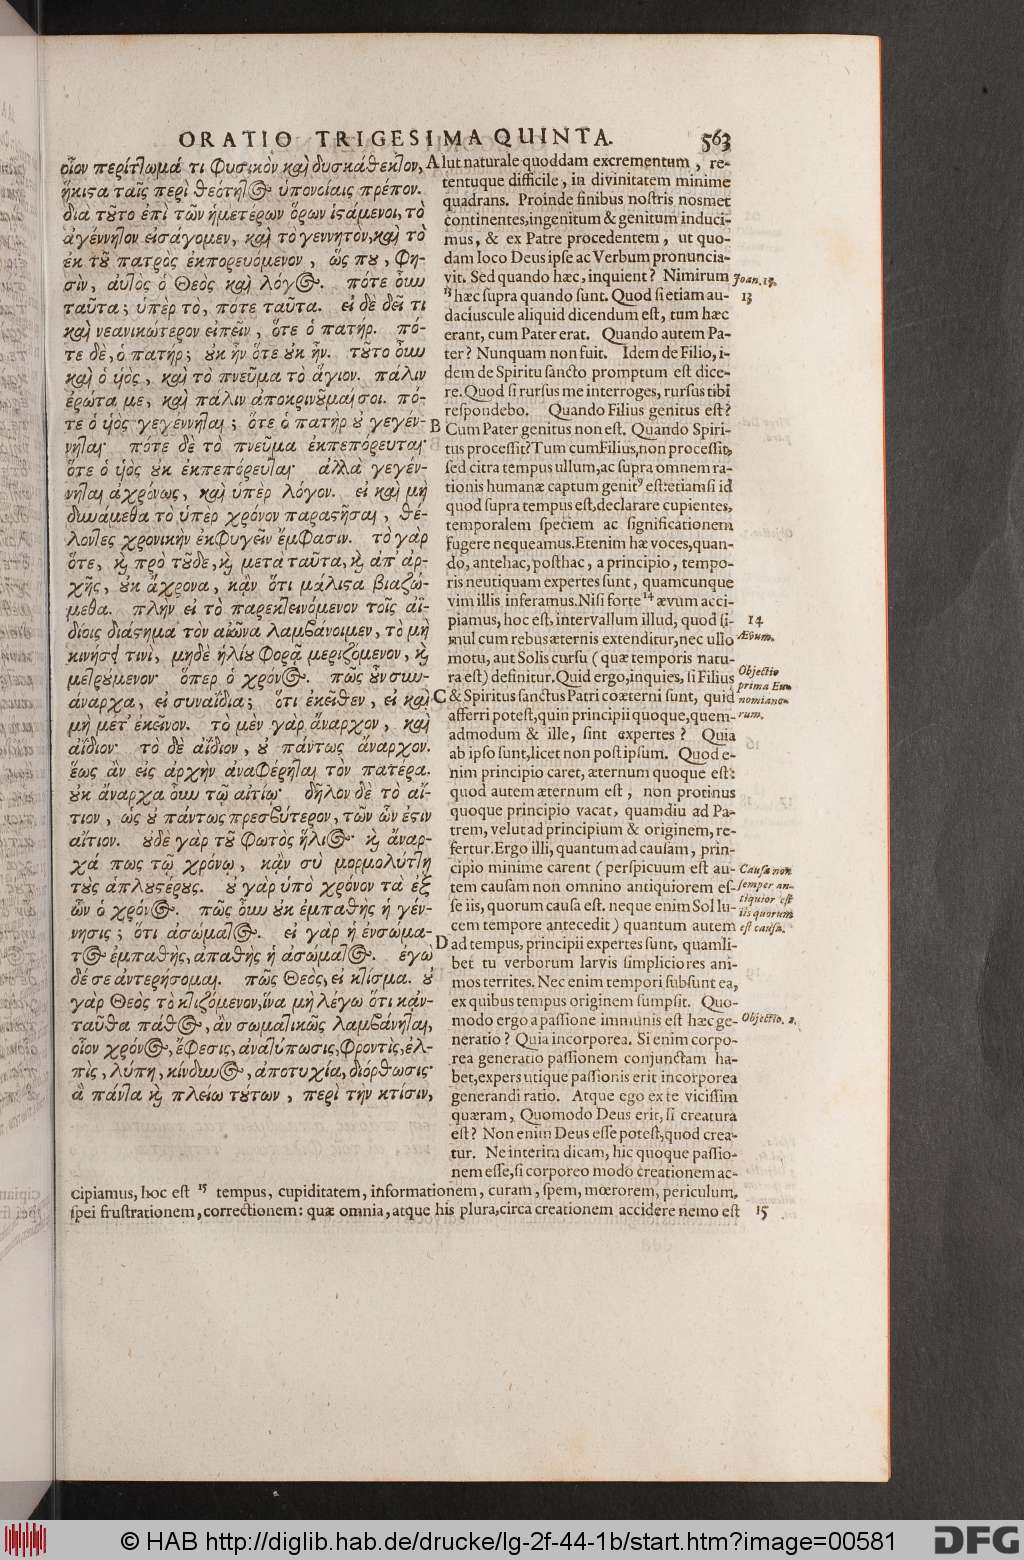 ORATIO TRIGESIMA QUINTA. 563
οἷον περίτ]ωμά τι φυσικὸν καὶ δυσκάθεκτον,
ἥκιστα ταῖς περὶ θεότητος ὑπονοίαις πρέπον.
διὰ τοῦτο ἐπὶ τῶν ἡμετέρων ὅρων ἱστάμενοι, τὸ
ἀγέννητον εἰσάγομεν, καὶ τὸ γεννητὸν, καὶ τὸ
ἐκ τοῦ πατρὸς ἐκπορευόμενον, ὥς που, φη-
σὶν, αὐτὸς ὁ Θεὸς καὶ λόγος. πότε οὖν
ταῦτα; ὑπὲρ τὸ, πότε ταῦτα. εἰ δὲ δεῖ τι
καὶ νεανικώτερον εἰπεῖν, ὅτε ὁ πατήρ. πό-
τε δὲ, ὁ πατήρ; οὐκ ἦν ὅτε οὐκ ἦν. τοῦτο οὖν
καὶ ὁ υἱὸς, καὶ τὸ πνεῦμα τὸ ἅγιον. πάλιν
ἐρώτα με, καὶ πάλιν ἀποκρινοῦμαί σοι. πό-
τε ὁ υἱὸς γεγέννηται; ὅτε ὁ πατὴρ οὐ γεγέν-
νηται· πότε δὲ τὸ πνεῦμα ἐκπεπόρευται·
ὅτε ὁ υἱὸς οὐκ ἐκπεπόρευται· ἀλλὰ γεγέν-
νηται ἀχρόνως, καὶ ὑπὲρ λόγον. εἰ καὶ μὴ
δυνάμεθα τὸ ὑπὲρ χρόνον παραστῆσαι, θέ-
λοντες χρονικὴν ἐκφυγεῖν ἔμφασιν. τὸ γὰρ
ὅτε, καὶ πρὸ τοῦδε, καὶ μετὰ ταῦτα, καὶ ἀπ' ἀρ-
χῆς, οὐκ ἄχρονα, κἂν ὅτι μάλιστα βιαζώ-
μεθα. πλὴν εἰ τὸ παρεκτεινόμενον τοῖς ἀϊ-
δίοις διάστημα τὸν αἰῶνα λαμβάνοιμεν, τὸ μὴ
κινήσει τινὶ, μηδὲ ἡλίου φορᾷ μεριζόμενον, καὶ
μετρούμενον· ὅπερ ὁ χρόνος. πῶς οὖν συν-
άναρχα, εἰ συναΐδια; ὅτι ἐκεῖθεν, εἰ καὶ
μὴ μετ' ἐκεῖνον. τὸ μὲν γὰρ ἄναρχον, καὶ
ἀΐδιον· τὸ δὲ ἀΐδιον, οὐ πάντως ἄναρχον.
ἕως ἂν εἰς ἀρχὴν ἀναφέρηται τὸν πατέρα.
οὐκ ἄναρχα οὖν τῷ αἰτίῳ· δῆλον δὲ τὸ αἴ-
τιον, ὡς οὐ πάντως πρεσβύτερον, τῶν ὧν ἐστιν
αἴτιον. οὐδὲ γὰρ τοῦ φωτὸς ἥλιος· καὶ ἄναρ-
χά πως τῷ χρόνῳ, κᾂν σὺ μορμολύττῃ
τοὺς ἁπλουστέρους. οὐ γὰρ ὑπὸ χρόνον τὰ ἐξ
ὧν ὁ χρόνος. πῶς οὖν οὐκ ἐμπαθὴς ἡ γέν-
νησις; ὅτι ἀσώματος. εἰ γὰρ ἡ ἐνσώμα-
τος ἐμπαθὴς, ἀπαθὴς ἡ ἀσώματος. ἐγὼ
δέ σε ἀντερήσομαι. πῶς Θεὸς, εἰ κτίσμα. οὐ
γὰρ Θεὸς τὸ κτιζόμενον, ἵνα μὴ λέγω ὅτι κἀν-
ταῦθα πάθος, ἂν σωματικῶς λαμβάνηται,
οἷον χρόνος, ἔφεσις, ἀνατύπωσις, φροντὶς, ἐλ-
πὶς, λύπη, κίνδυνος, ἀποτυχία, διόρθωσις·
ἃ πάντα καὶ πλείω τούτων, περὶ τὴν κτίσιν,
A lut naturale quoddam excrementum, re-
tentuque difficile, in divinitatem minime
quadrans. Proinde finibus nostris nosmet
continentes, ingenitum & genitum induci-
mus, & ex Patre procedentem, ut quo-
dam loco Deus ipse ac Verbum pronuncia-
vit. Sed quando hæc, inquient? Nimirum
13 hæc supra quando sunt. Quod si etiam au-
daciuscule aliquid dicendum est, tum hæc
erant, cum Pater erat. Quando autem Pa-
ter? Nunquam non fuit. Idem de Filio, i-
dem de Spiritu sancto promptum est dice-
re. Quod si rursus me interroges, rursus tibi
respondebo. Quando Filius genitus est?
B Cum Pater genitus non est. Quando Spiri-
tus processit? Tum cum Filius, non processit,
sed citra tempus ullum, ac supra omnem ra-
tionis humanæ captum genitꝰ est: etiamsi id
quod supra tempus est, declarare cupientes,
temporalem speciem ac significationem
fugere nequeamus. Etenim hæ voces, quan-
do, antehac, posthac, a principio, tempo-
ris neutiquam expertes sunt, quamcunque
vim illis inferamus. Nisi forte 14 ævum acci-
piamus, hoc est, intervallum illud, quod si-
mul cum rebus æternis extenditur, nec ullo
motu, aut Solis cursu (quæ temporis natu-
ra est) definitur. Quid ergo, inquies, si Filius
C & Spiritus sanctus Patri coæterni sunt, quid
afferri potest, quin principii quoque, quem-
admodum & ille, sint expertes? Quia
ab ipso sunt, licet non post ipsum. Quod e-
nim principio caret, æternum quoque est:
quod autem æternum est, non protinus
quoque principio vacat, quamdiu ad Pa-
trem, velut ad principium & originem, re-
fertur. Ergo illi, quantum ad causam, prin-
cipio minime carent (perspicuum est au-
tem causam non omnino antiquiorem es-
se iis, quorum causa est. neque enim Sol lu-
cem tempore antecedit) quantum autem
D ad tempus, principii expertes sunt, quamli-
bet tu verborum larvis simpliciores ani-
mos territes. Nec enim tempori subsunt ea,
ex quibus tempus originem sumpsit. Quo-
modo ergo a passione immunis est hæc ge-
neratio? Quia incorporea. Si enim corpo-
rea generatio passionem conjunctam ha-
bet, expers utique passionis erit incorporea
generandi ratio. Atque ego ex te vicissim
quæram, Quomodo Deus erit, si creatura
est? Non enim Deus esse potest, quod crea-
tur. Ne interim dicam, hic quoque passio-
nem esse, si corporeo modo creationem ac-
cipiamus, hoc est 15 tempus, cupiditatem, informationem, curam, spem, mœrorem, periculum,
spei frustrationem, correctionem: quæ omnia, atque his plura, circa creationem accidere nemo est
Joan. 17.
13
14
Ævum.
Objectio
prima Eu-
nomiano-
rum.
Causa non
semper an-
tiquior est
iis quorum
est causa.
Objectio. 2.
15
© HAB http://diglib.hab.de/drucke/lg-2f-44-1b/start.htm?image=00581
DFG